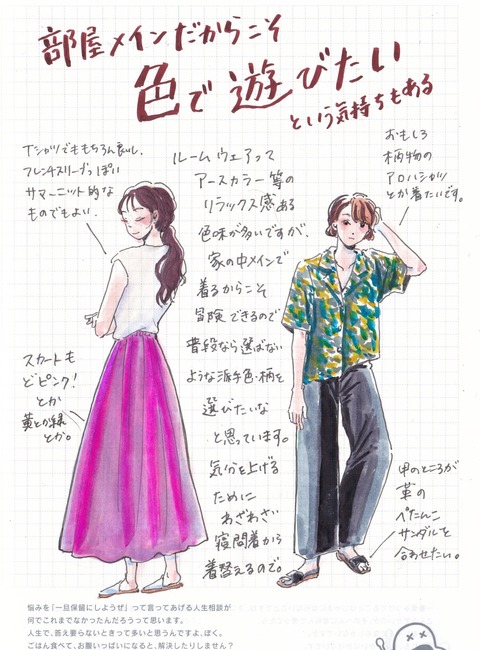 部屋メインだからこそ
色で遊びたい
という気持ちもある
Tシャツでももちろん良いし、
フレンチスリーブっぽい
サマーニット的な
ものでもよい.
ルームウェアって
アースカラー等の
リラックス感ある
色味が多いですが、
家の中メインで
着るからこそ
冒険できるので
普段なら選ばない
ような派手色・柄を
選びたいな
と思っています。
気分を上げる
ために
わざわざ
寝間着から
着替えるので。
おもしろ
柄物の
アロハシャツ
とか着たいです。
スカートも
どピンク!
とか
黄とか緑
とか。
甲のところが
革の
ぺたんこ
サンダルを
合わせたい。
悩みを「一旦保留にしようぜ」って言ってあげる人生相談が
何でこれまでなかったんだろうって思います。
人生で、答え要らないときって多いと思うんですよ、ぼく。
ごはん食べて、お腹いっぱいになると、解決したりしません?